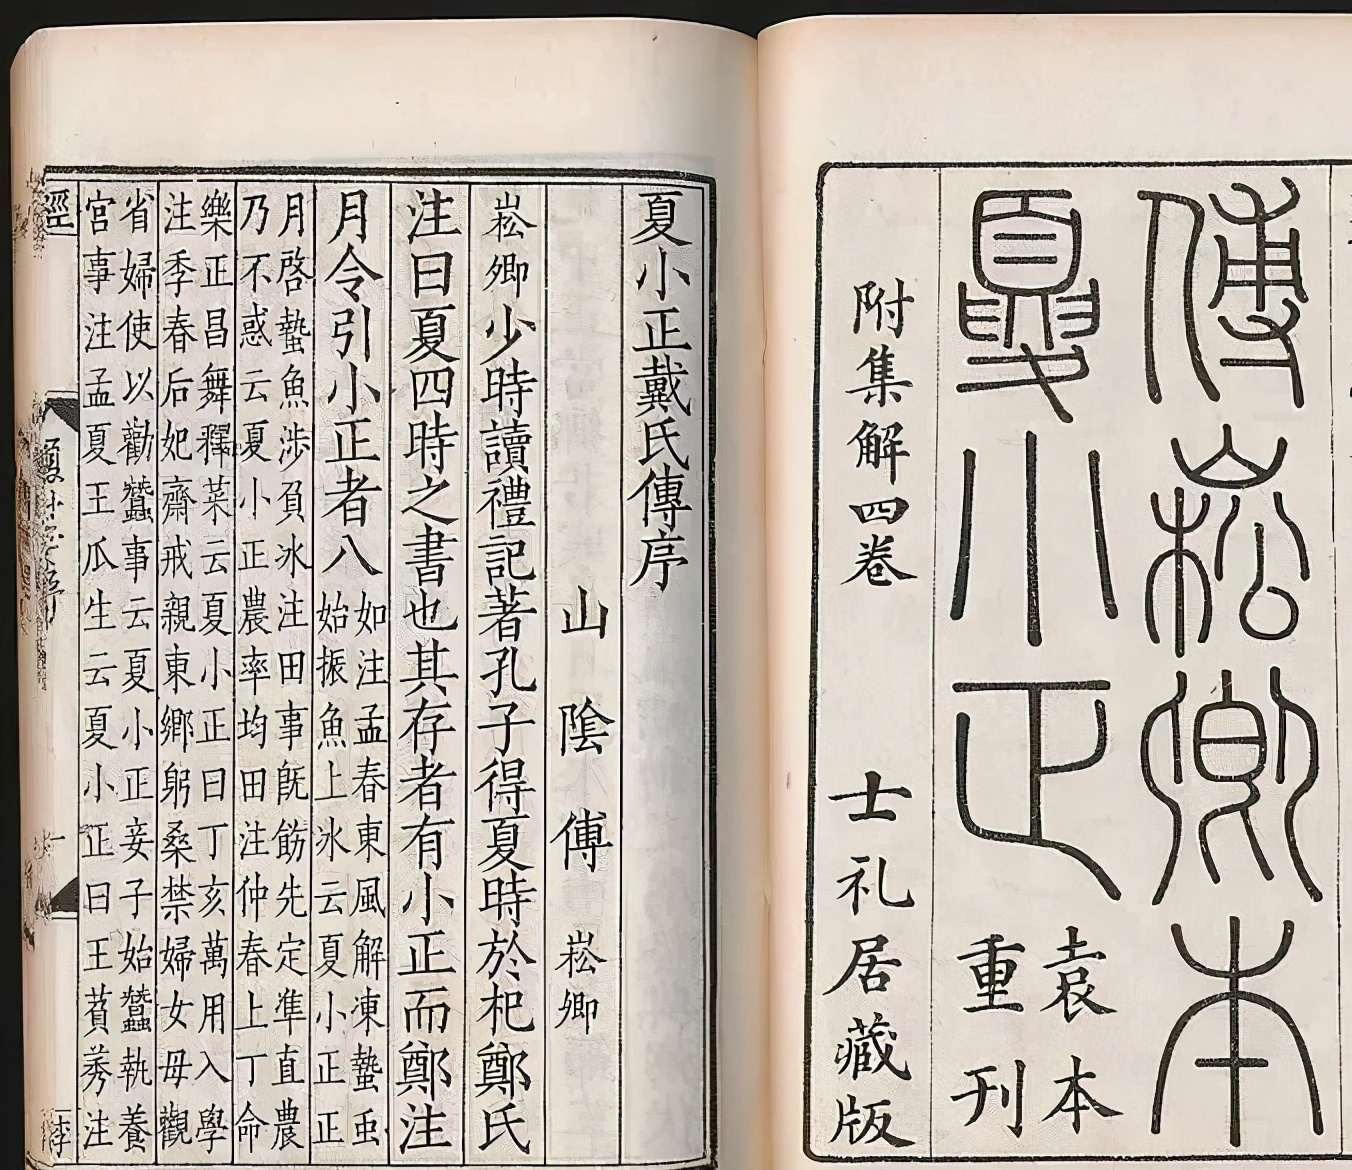 傅崧卿本
夏小正
袁本
重刊
附集解四卷
士礼居藏版
夏小正戴氏傳序
山陰傅崧卿
崧卿少時讀禮記著孔子得夏時於杞鄭氏
注曰夏四時之書也其存者有小正而鄭注
月令引小正者八
如注孟春東風解凍蟄虫
始振魚上冰云夏小正正
月啓蟄魚渉負冰注田事既飭先定準直農
乃不惑云夏小正農率均田注仲春上丁命
樂正昌舞釋菜云夏小正曰丁亥萬用入學
注季春后妃齋戒親東鄉躬桑禁婦女毋觀
省婦使以勸蠶事云夏小正妾子始蠶執養
宮事注孟夏王瓜生云夏小正曰王萯莠注